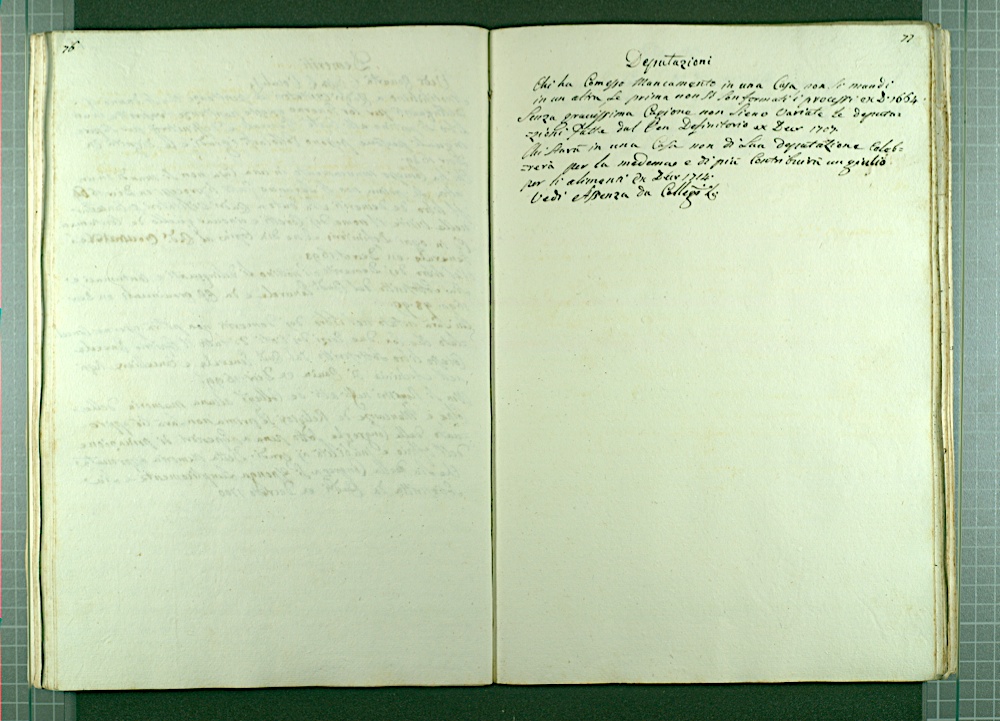 76
77
Deputazioni
Chi ha Comesso Mancamento in una Casa non si mandi
in un altra se prima non si son formati i processi ex D. 1664.
Senza gravissima Cagione non sieno variate le deputa-
zioni fatte dal Ven Definitorio ex Decr 1707.
Chi starà in una Casa non di sua deputatione Celeb-
rerà per la medema e di più Contribuirà un giulio
per li alimenti ex Decr 1714.
Vedi Assenza da Collegi